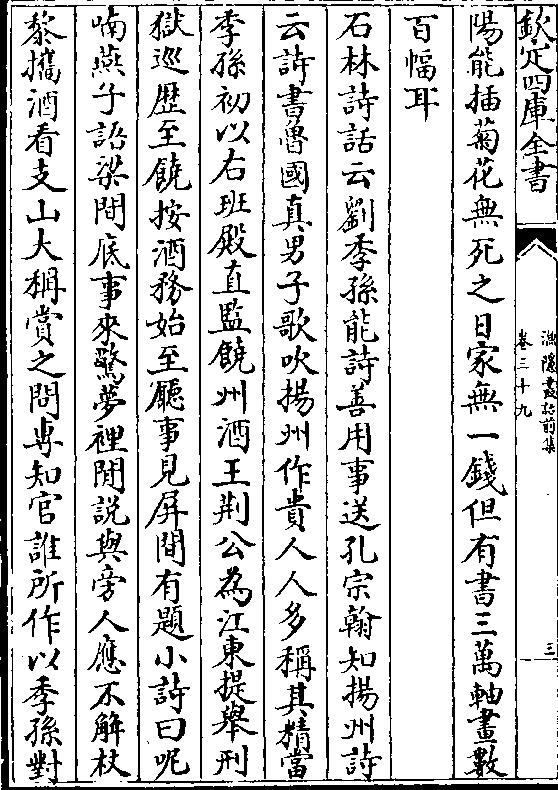 欽定四庫全書
漁隱叢話前集
卷三十九
三
陽能插菊花無死之日家無一錢但有書三萬軸畫數
百幅耳
石林詩話云劉季孫能詩善用事送孔宗翰知揚州詩
云詩書魯國真男子歌吹揚州作貴人人多稱其精當
季孫初以右班殿直監饒州酒王荆公為江東提舉刑
獄巡歴至饒按酒務始至廳事見屏間有題小詩曰呢
喃燕子語梁間底事來驚夢裡閒說與旁人應不解杖
藜攜酒看支山大稱賞之問專知官誰所作以季孫對